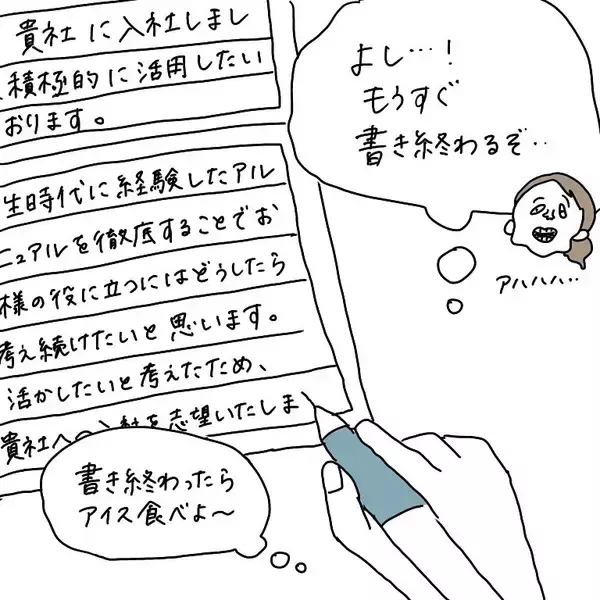 貴社に入社しまし
積極的に活用したい
おります。
生時代に経験したアル
ニュアルを徹底することでお
様の役に立つにはどうしたら
考え続けたいと思います。
活かしたいと考えたため、
貴社への入社を志望いたしま
よし…!
もうすぐ
書き終わるぞ‥
アハハハ‥
書き終わったら
アイス食べよ〜